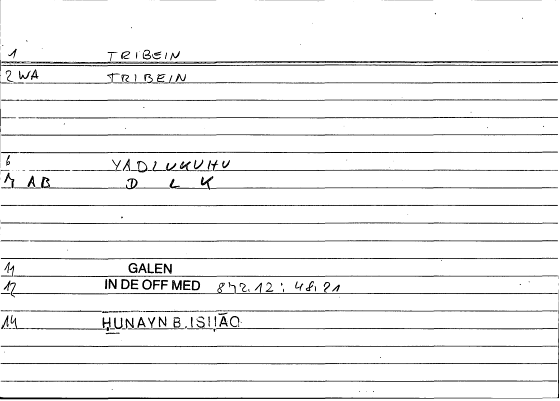 1 TRIBEIN
2 WA TRIBEIN
6 YADLUKUHU
7 AB D L K
11 GALEN
12 IN DE OFF MED 842.12; 48.21
14 ḤUNAYN B. ISḤĀQ